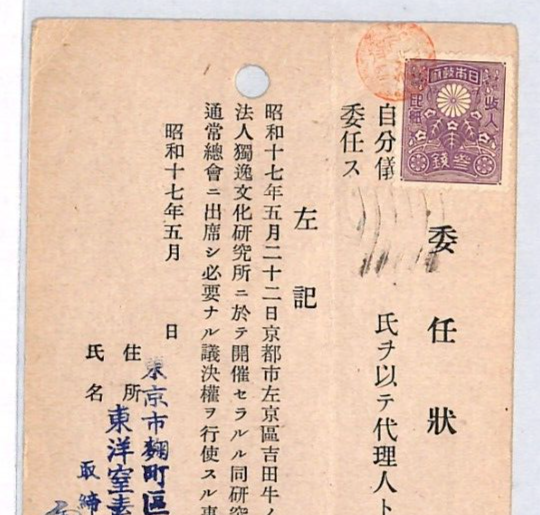 委任狀
氏ヲ以テ代理人ト
自分儀
委任ス
左記
昭和十七年五月二十二日京都市左京區吉田牛ノ
法人獨逸文化硏究所ニ於テ開催セラルル同硏究
通常總會ニ出席シ必要ナル議決權ヲ行使スル事
昭和十七年五月 日
住所 東京市麴町區
氏名 東洋窒素
取締
日本帝國政府
收入印紙
叁錢